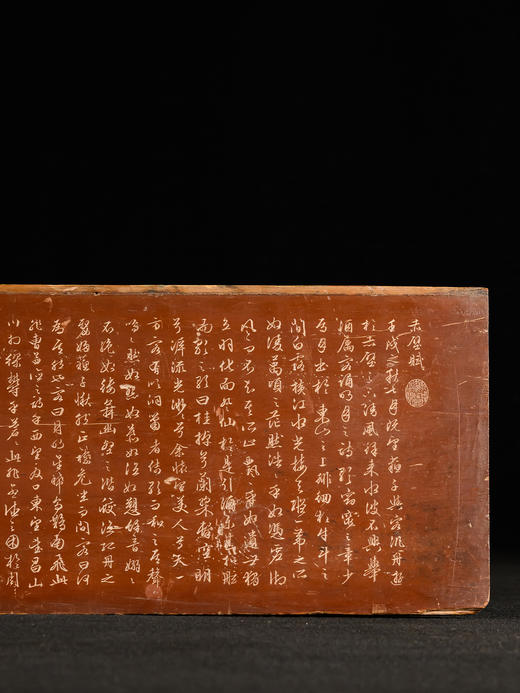 赤壁賦
壬戌之秋七月既望蘇子與客泛舟遊
於赤壁之下清風徐來水波不興舉
酒屬客誦明月之詩歌窈窕之章少
焉月出於東山之上徘徊於斗牛之
間白露橫江水光接天縱一葦之所
如凌萬頃之茫然浩浩乎如馮虛御
風而不知其所止飄飄乎如遺世獨
立羽化而登仙於是飲酒樂甚扣舷
而歌之歌曰桂棹兮蘭槳擊空明
兮泝流光渺渺兮余懷望美人兮天一
方客有吹洞簫者倚歌而和之其聲
嗚嗚然如怨如慕如泣如訴餘音嫋嫋
不絕如縷舞幽壑之潛蛟泣孤舟之
嫠婦蘇子愀然正襟危坐而問客曰何
為其然也客曰月明星稀烏鵲南飛此
非曹孟德之詩乎西望夏口東望武昌山
川相繆鬱乎蒼蒼此非孟德之困於周